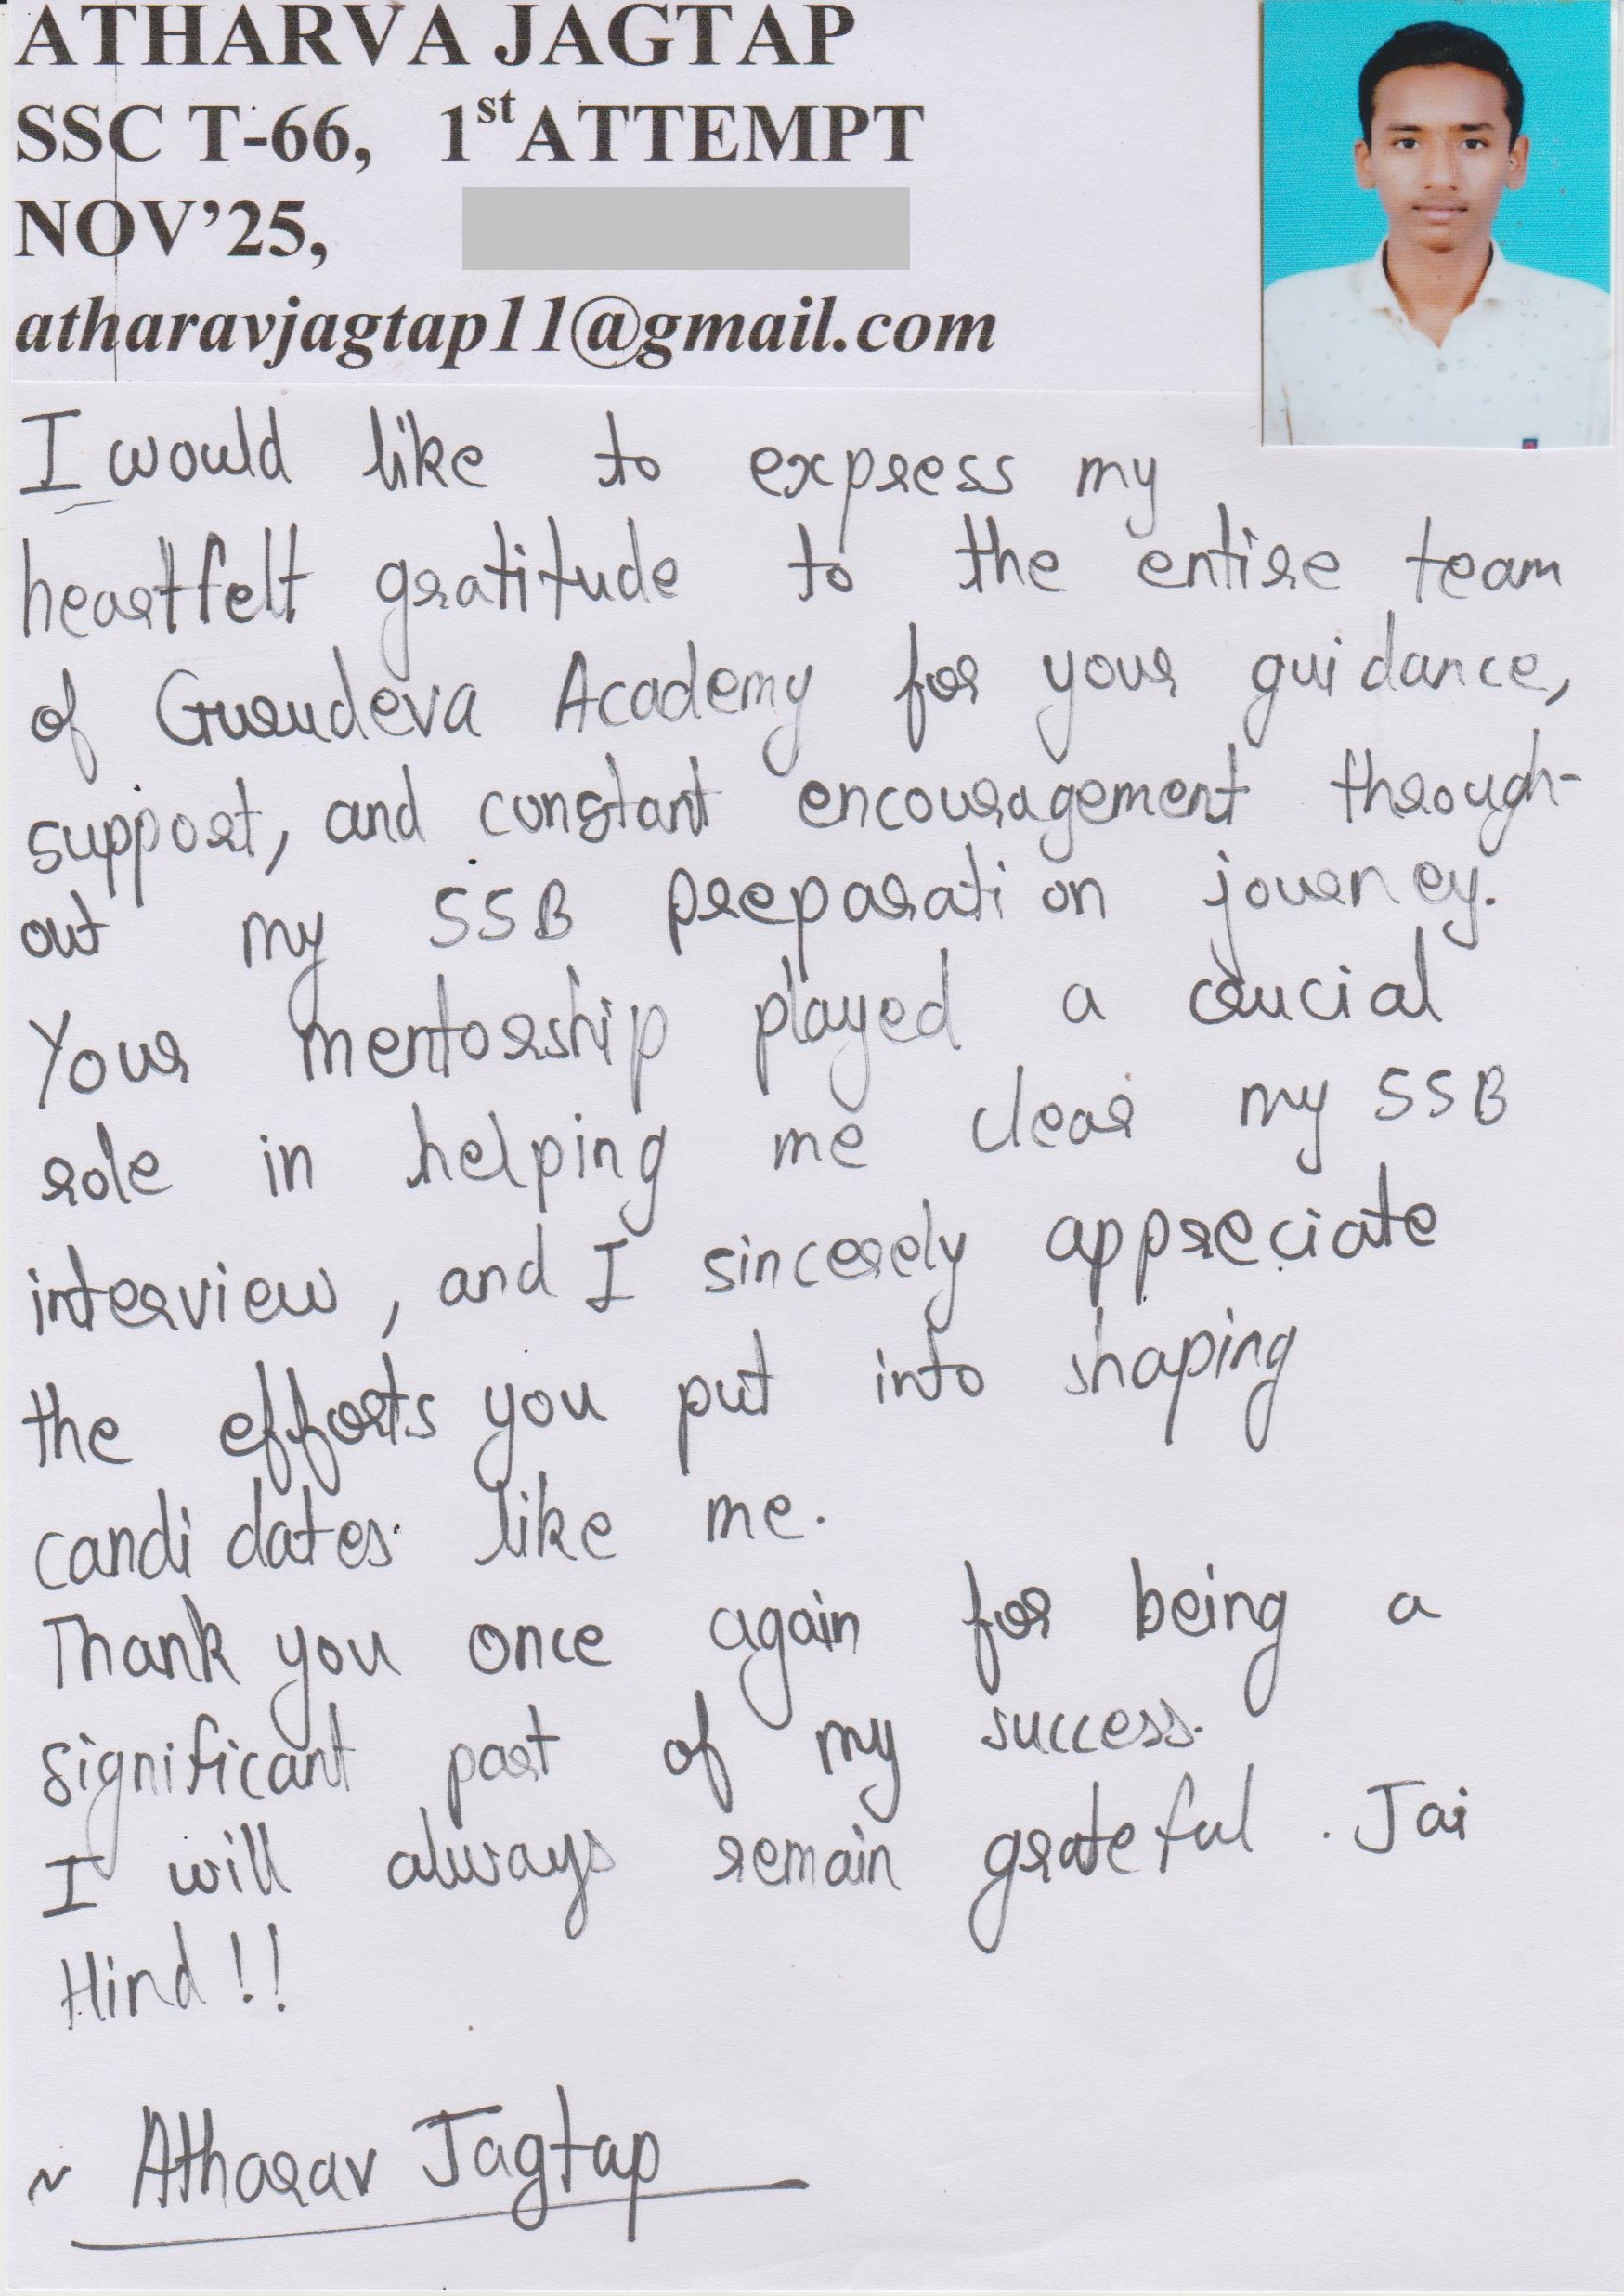 ATHARVA JAGTAP
SSC T-66, 1st ATTEMPT
NOV'25,
atharavjagtap11@gmail.com
I would like to express my
heartfelt gratitude to the entire team
of Gurudeva Academy for your guidance,
support, and constant encouragement through-
out my SSB preparation journey.
Your mentorship played a crucial
role in helping me clear my SSB
interview, and I sincerely appreciate
the efforts you put into shaping
candidates like me.
Thank you once again for being a
significant part of my success.
I will always remain grateful. Jai
Hind!!
~ Atharav Jagtap